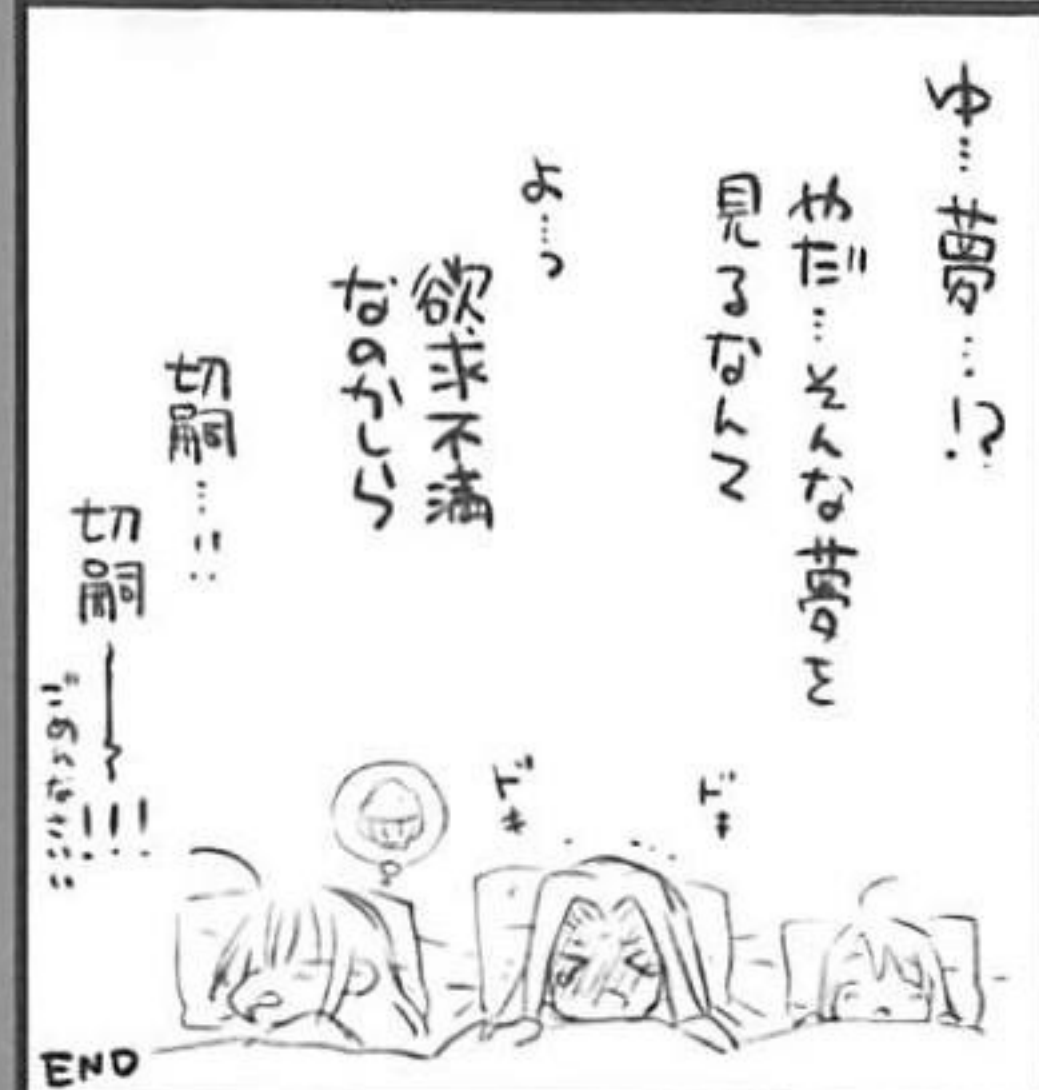 ゆ…夢…!?
やだ…そんな夢を
見るなんて
よ…っ
欲求不満
なのかしら
切嗣…!!
切嗣――!!!
ごめんなさいい
ドキ
ドキ
END